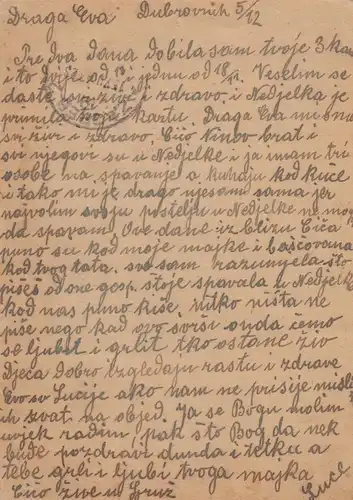 Draga Eva Dubrovnik 5/12
Pre dva dana dobila sam tvoje 3 kar
i to dvije od 13 i jednu od 18/11. Veselim se
da ste svi živi i zdravo, i Nedjelka je
primila tvoju kartu. Draga Eva mi smo
svi živi i zdravo. Čićo Ninov brat i
svi njegovi su u Nedjelke i ja imam tri
osobe na spavanje a kuhaju kod kuće
i tako mi je drago njesam sama jer
najvolim svoju postelju u Nedjelke ne mogu
da spavam. Ove dane iz blizu Čića
puno su kod moje majke i
kod tvog tata. sve sam razumjela što
pišeš od one gosp. što je spavala u Nedjelke
kod nas puno kiše. nitko ništa ne
piše nego kad ovo svrši onda ćemo
se ljubit i grlit tko ostane živ
Djeca dobro izgledaju rastu i zdrave
Evo sv Lucije ako nam ne prisije misli
ih zvat na objed. Ja se Bogu molim
uvjek radim, pak što Bog da nek
bude pozdravi dunda i tetku a
tebe grli i ljubi tvoga majka
Čićo žive u Gruž